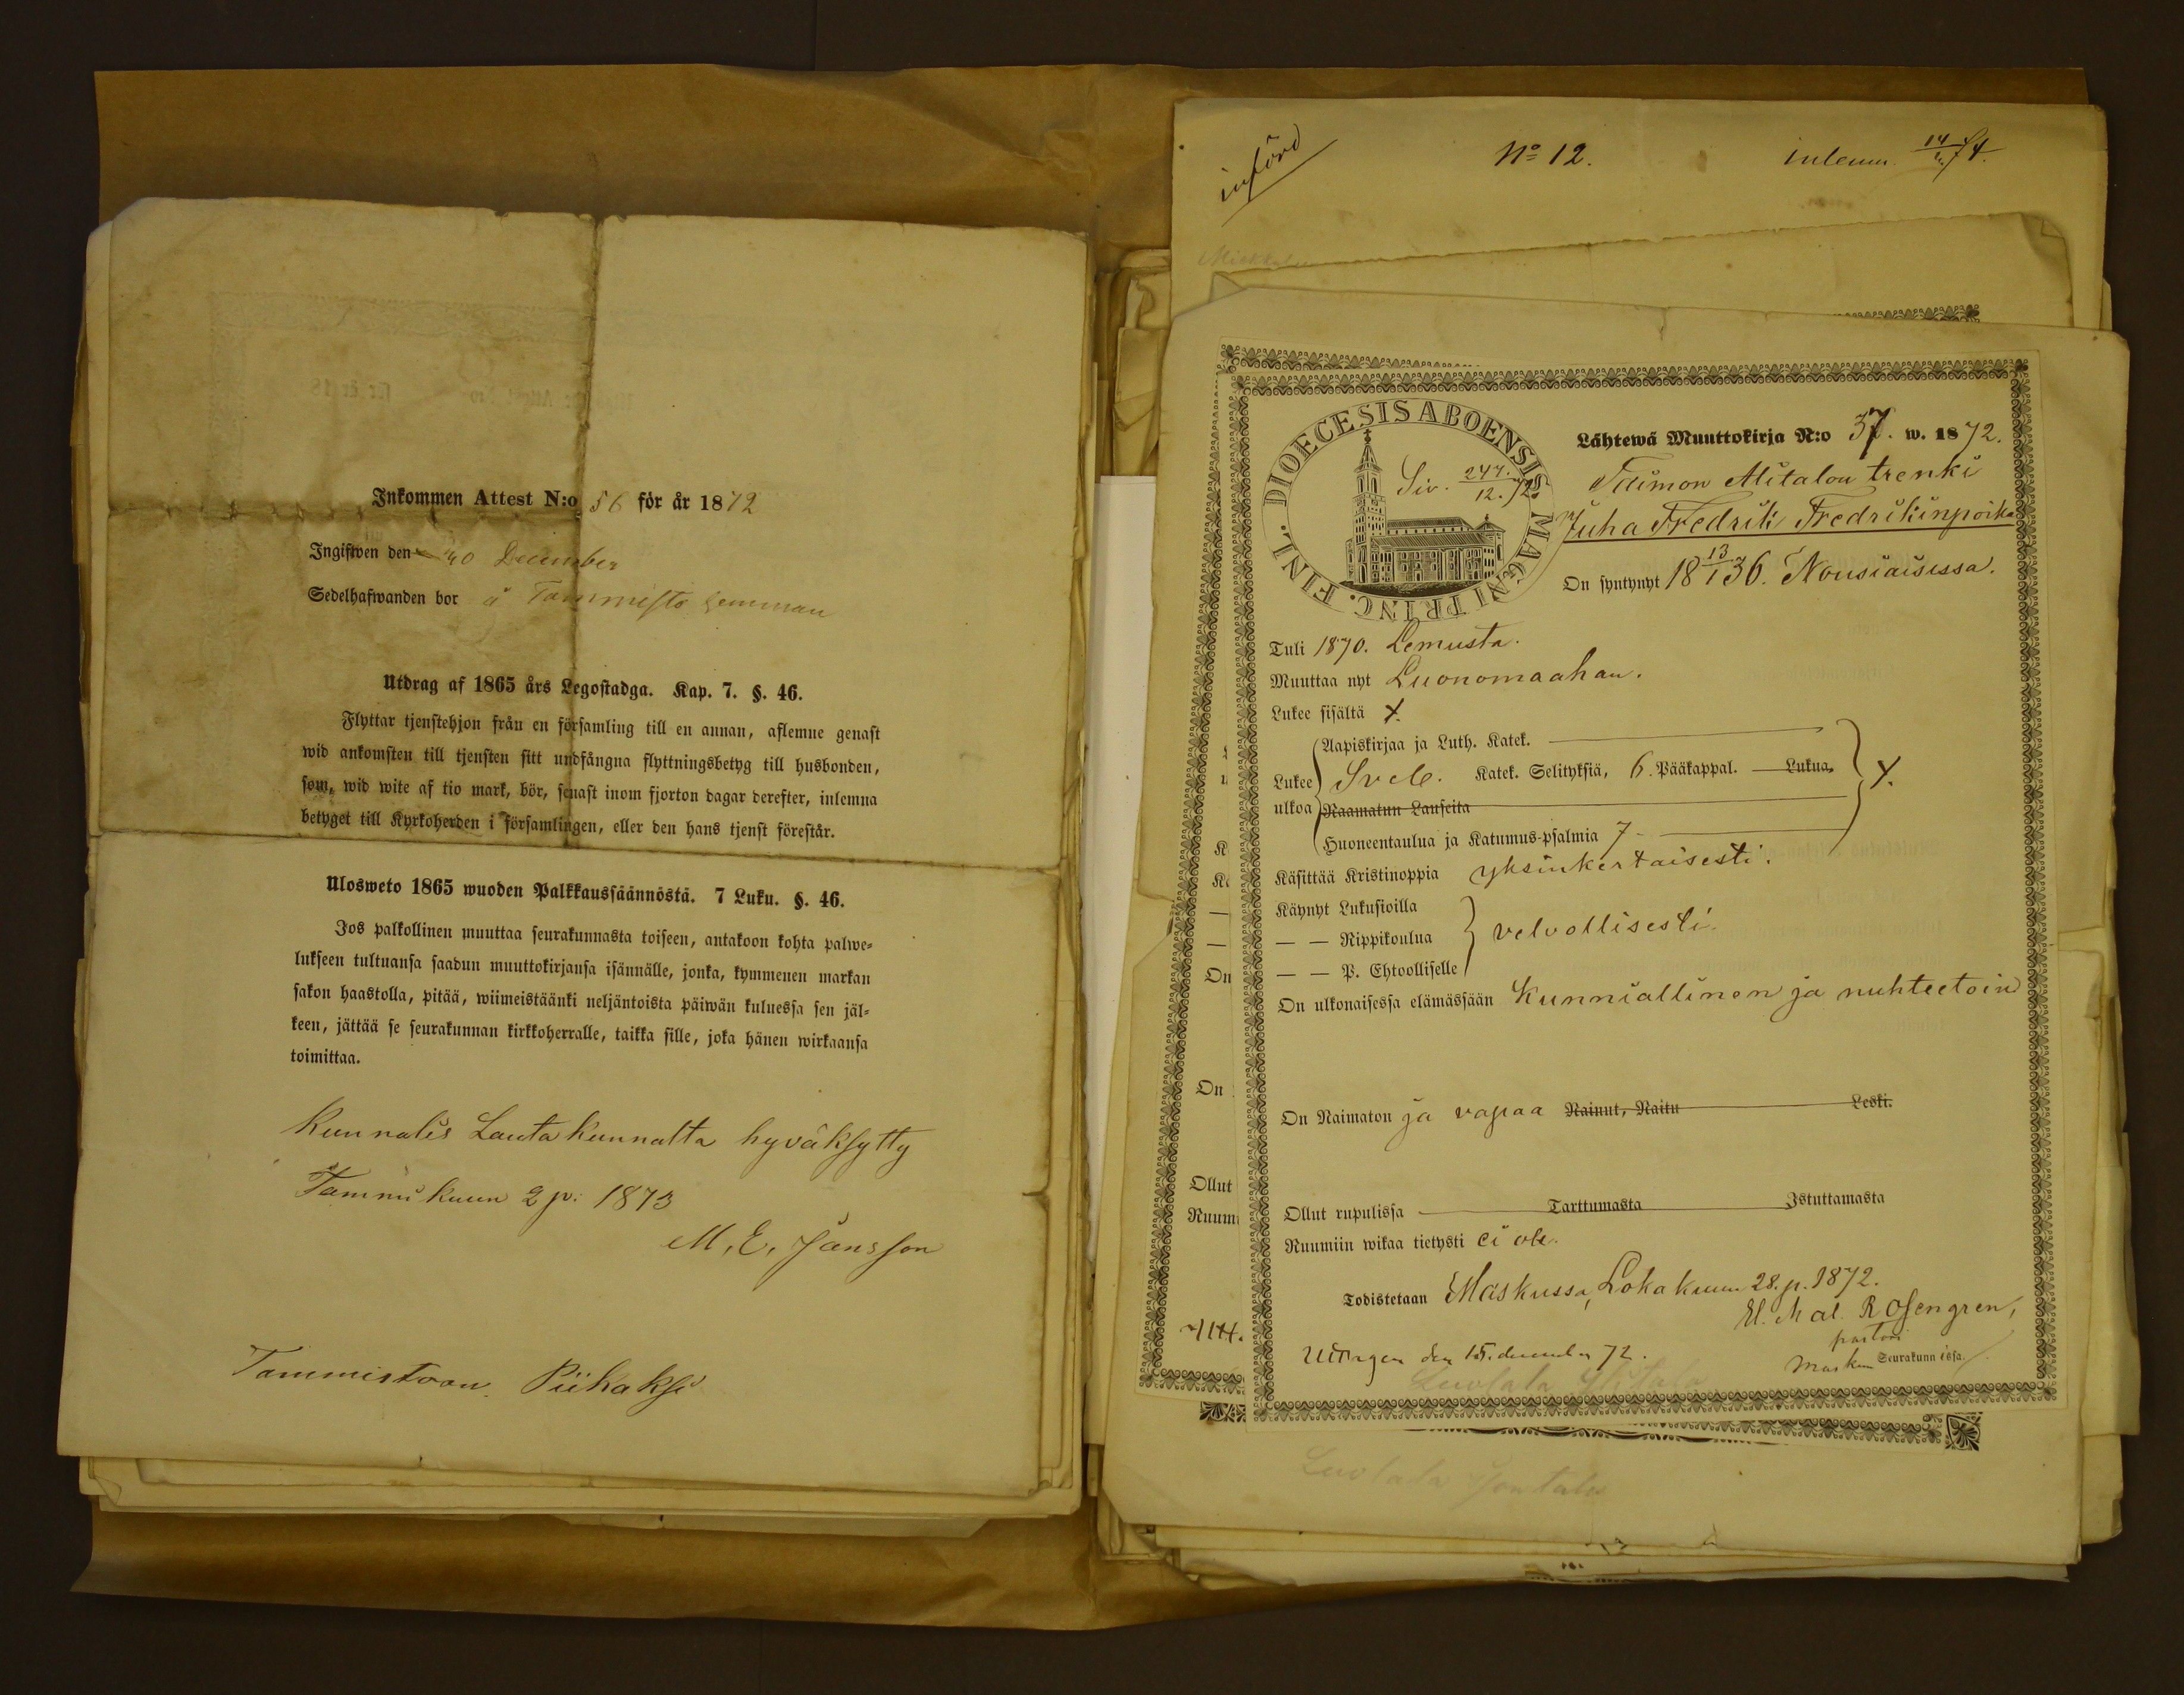 Inkommen Attest N:o 56 för år 1872
Ingifwen den 30 December
Sedelhafwanden bor å Tammisto hemman
Utdrag af 1865 års Legostadga. Kap. 7. §. 46.
Flyttar tjenstehjon från en församling till en annan, aflemne genast
wid ankomsten till tjensten sitt undfångna flyttningsbetyg till husbonden,
som, wid wite af tio mark, bör, senast inom fjorton dagar derefter, inlemna
betyget till Kyrkoherden i församlingen, eller den hans tjenst förestår.
Ulosweto 1865 wuoden Palkkaussäännöstä. 7 Luku. §. 46.
Jos palkollinen muuttaa seurakunnasta toiseen, antakoon kohta palwe-
lukseen tultuansa saadun muuttokirjansa isännälle, jonka, kymmenen markan
sakon haastolla, pitää, wiimeistäänki neljäntoista päiwän kuluessa sen jäl-
keen, jättää se seurakunnan kirkkoherralle, taikka sille, joka hänen wirkaansa
toimittaa.
Kunnalis Lautakunnalta hyväksytty
Tammikuun 2 p: 1873
M. E. Jansson
Tammistoon Piikaksi
införd
No 12.
inlemn. 14/2 74.
DIOECESIS ABOENSIS MAGNI PRINC. FINL.
Siv. 247. 12. 72.
Lähtewä Muuttokirja N:o 37. w. 1872.
Taimon Alitalon trenki
Juha Fredrik Fredrikinpoika
On syntynyt 18 13/1 36. Nousiaisissa.
Tuli 1870. Lemusta.
Muuttaa nyt Luonomaahan.
Lukee sisältä X.
Aapiskirjaa ja Luth. Katek.
Lukee ulkoa Svel. Katek. Selityksiä, 6. Pääkappal. Lukua, X.
Raamatun Lauseita
Huoneentaulua ja Katumus-psalmia 7
Käsittää Kristinoppia yksinkertaisesti.
Käynyt Lukusioilla
— — Rippikoulua velvollisesti.
— — P. Ehtoolliselle
On ulkonaisessa elämässään Kunniallinen ja nuhteetoin
On Naimaton ja vapaa Nainut, Naitu Leski.
Ollut rupulissa Tarttumasta Istuttamasta
Ruumiin wikaa tietysti ei ole.
Todistetaan Maskussa, Lokakuun 28. p. 1872.
El. Mal. Rosengren,
pastori
Maskun Seurakunnissa.
den 15. december 72.
Luolala Alitalo
Luolala